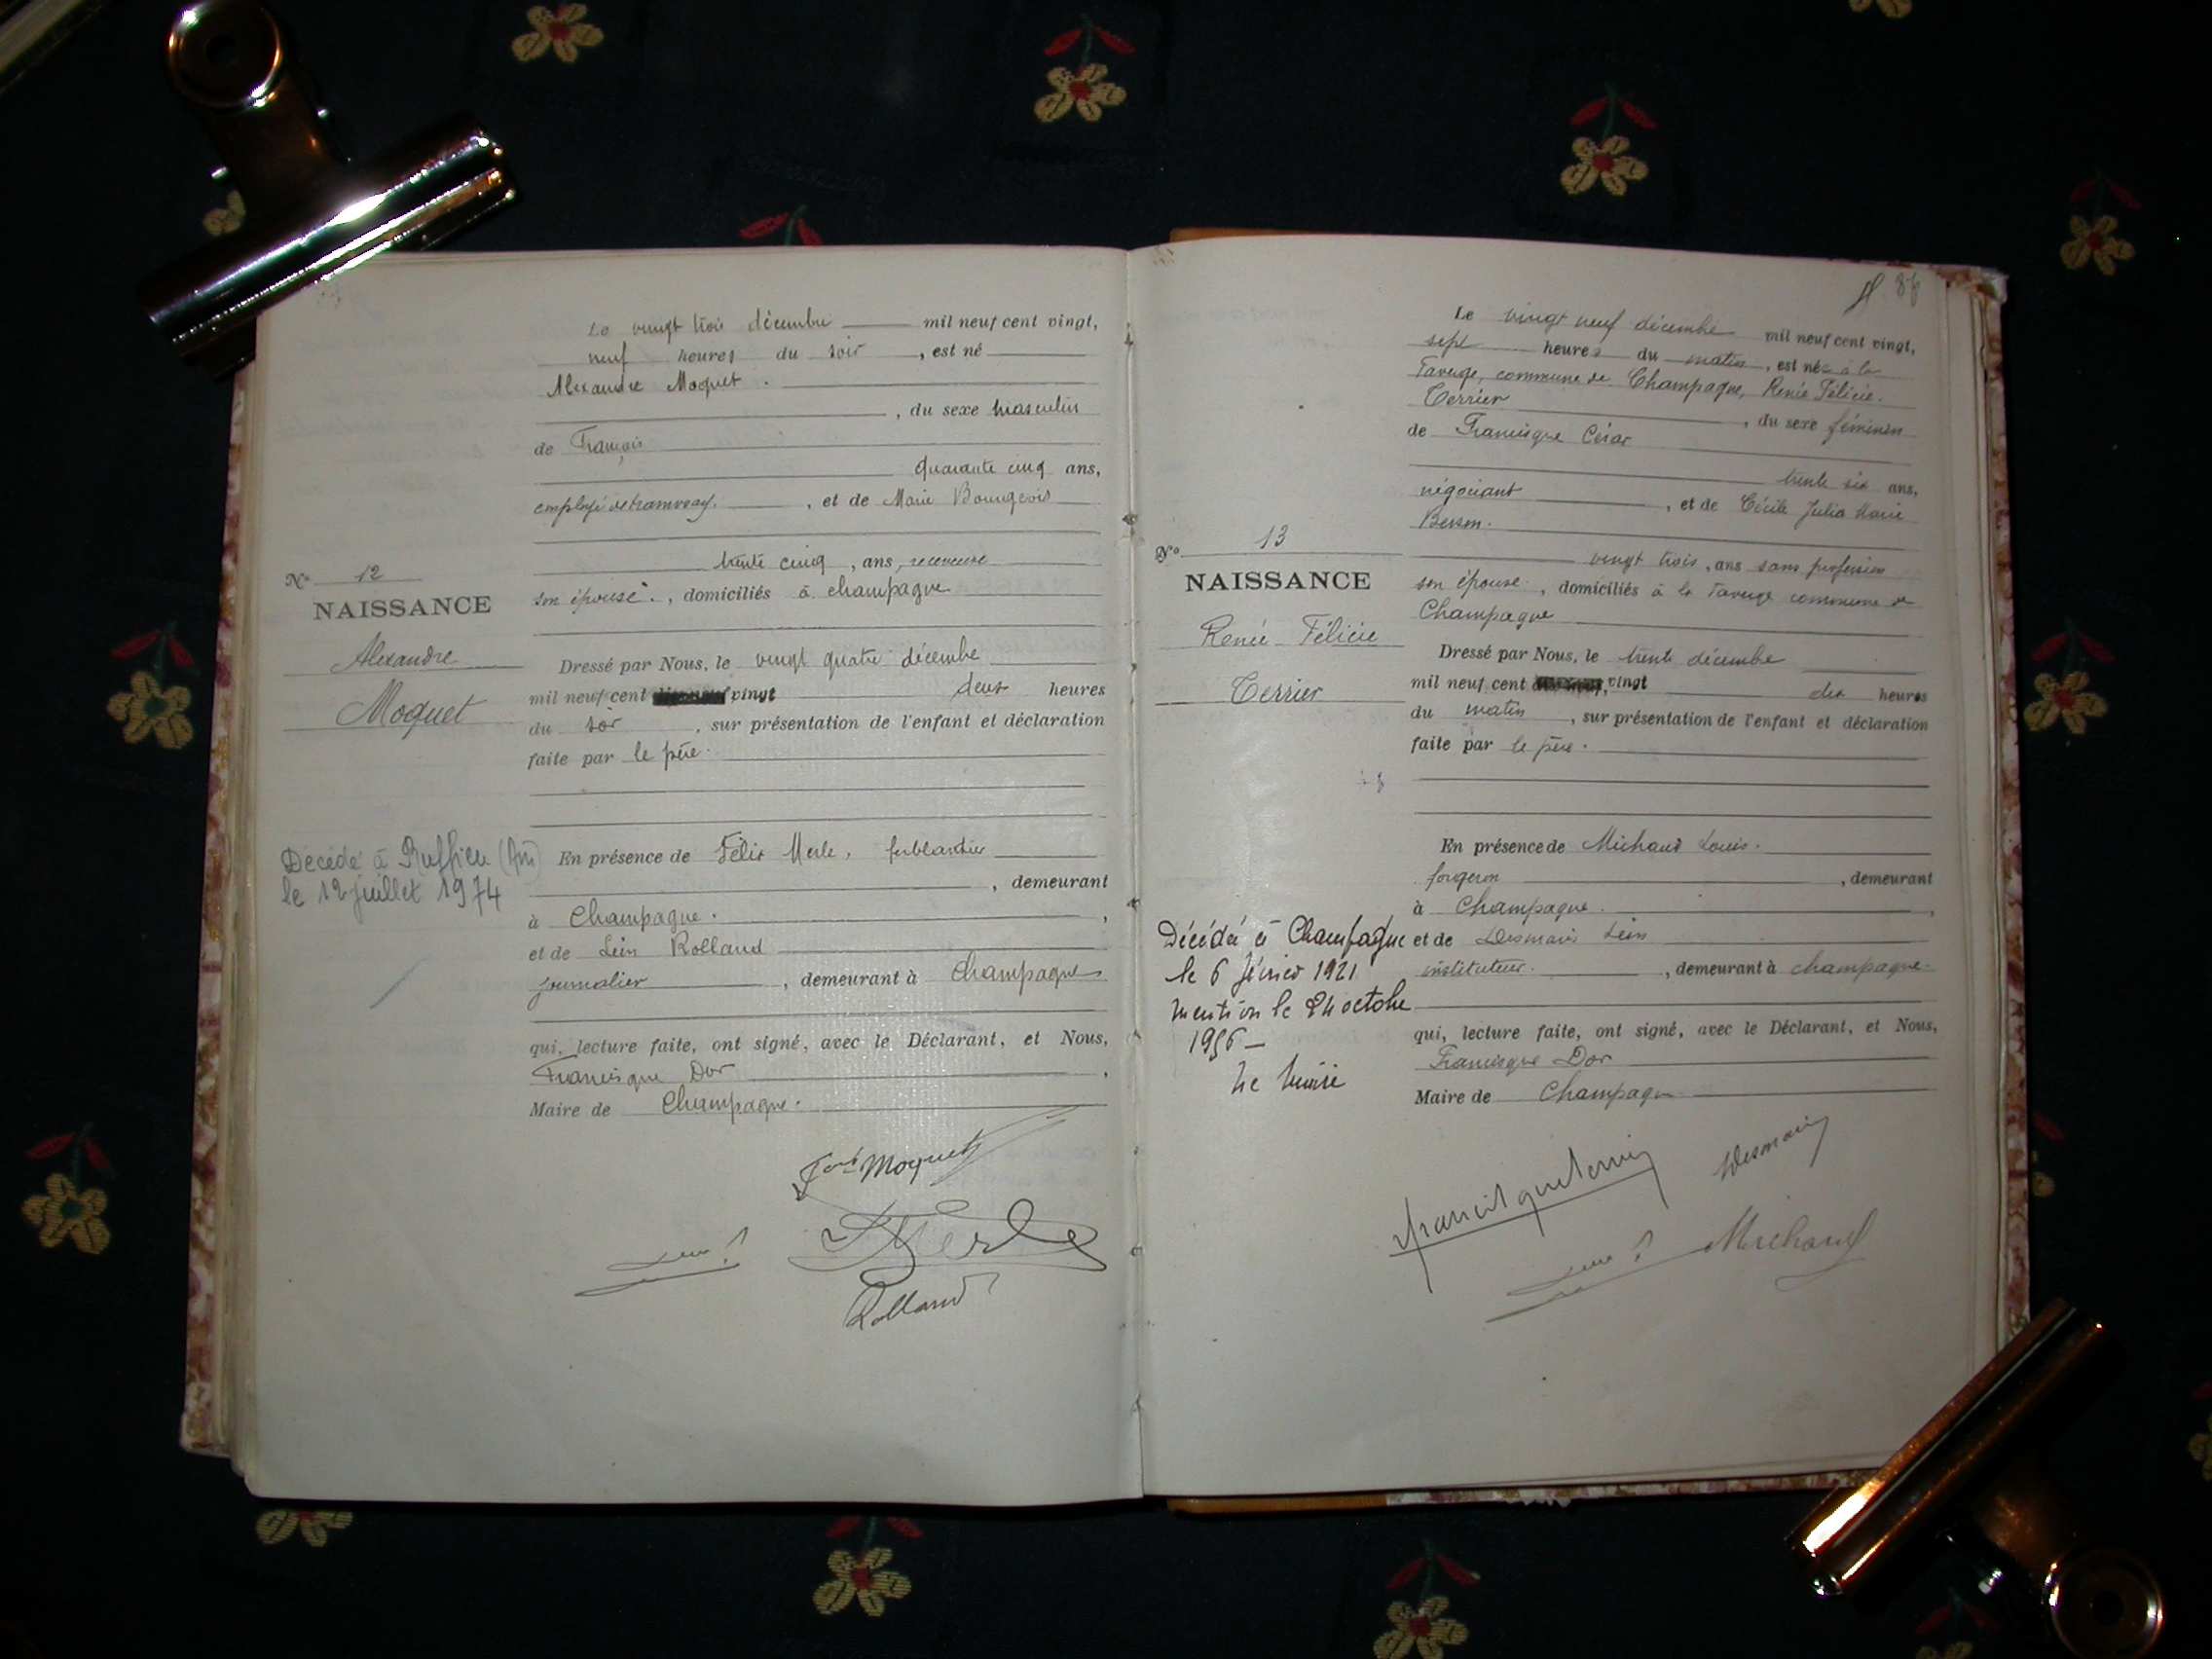 Le vingt trois décembre mil neuf cent vingt,
neuf heures du soir, est né
Alexandre Moquet.
, du sexe masculin
de François
quarante cinq ans,
employé de tramway, et de Marie Bourgeois
trente cinq, ans, receveuse
son épouse., domiciliés à champagne
N° 12
NAISSANCE
Alexandre
Moquet
Dressé par Nous, le vingt quatre décembre
mil neuf cent vingt deux heures
du soir, sur présentation de l'enfant et déclaration
faite par le père.
Décédé à Ruffieu (Ain)
le 12 juillet 1974
En présence de Félix Merle, ferblantier
, demeurant
à Champagne.,
et de Léon Rolland
journalier, demeurant à Champagne
qui, lecture faite, ont signé, avec le Déclarant, et Nous,
Francisque Dor,
Maire de Champagne.
Moquet
Merle
Rolland
Le vingt neuf décembre mil neuf cent vingt,
sept heures du matin, est née à la
Taverge, commune de Champagne, Renée Félicie.
Terrier
, du sexe féminin
de Francisque César
trente six ans,
négociant, et de Cécile Julia Marie
Berson.
vingt trois, ans sans profession
son épouse., domiciliés à la Taverge commune de
Champagne
N° 13
NAISSANCE
Renée Félicie
Terrier
Dressé par Nous, le trente décembre
mil neuf cent vingt dix heures
du matin, sur présentation de l'enfant et déclaration
faite par le père.
En présence de Michaud Louis.
forgeron, demeurant
à Champagne.,
et de Desmaris Léon
instituteur., demeurant à champagne.
Décédée à Champagne
le 6 février 1921
Mention le 24 octobre
1956 —
Le Maire
qui, lecture faite, ont signé, avec le Déclarant, et Nous,
Francisque Dor
Maire de Champagne
Francisque Terrier
Desmaris
Michaud